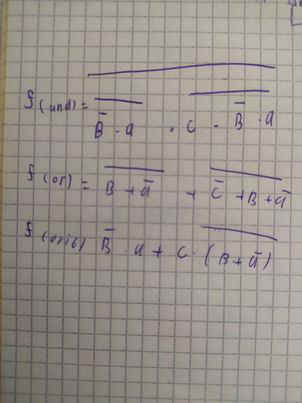 f(und) = \overline{\overline{\overline{B} · a} · \overline{C · \overline{B} · a}}
f(or) = \overline{B + \overline{a}} + \overline{\overline{C} + B + \overline{a}}
f(orig) \overline{B} · a + C · \overline{(B + \overline{a})}